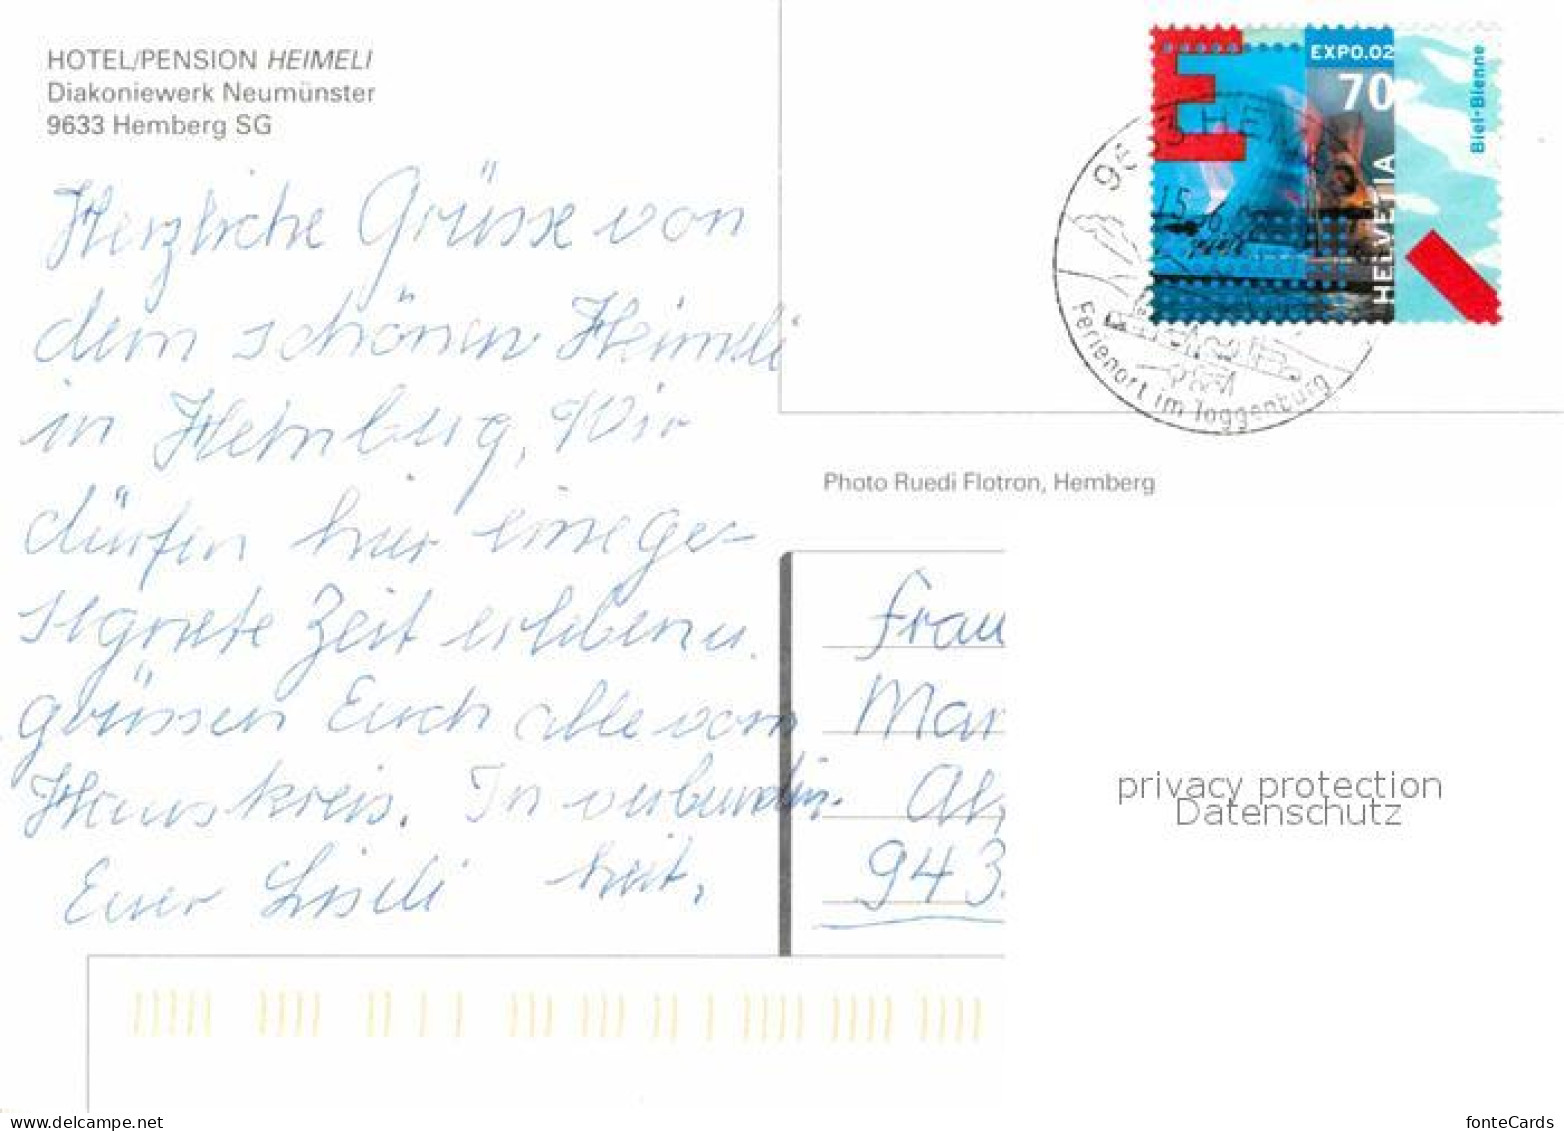 HOTEL/PENSION HEIMELI
Diakoniewerk Neumünster
9633 Hemberg SG
Herzliche Grüsse von
dem schönen Heimeli
in Hemberg, Wir
dürfen hier eine ge-
segnete Zeit erleben u.
grüssen Euch alle vom
Hauskreis. In verbunden.
Euer Liseli heit,
EXPO.02
70
HELVETIA
Biel-Bienne
9633 HE
15.6.
Ferienort im Toggenburg
Photo Ruedi Flotron, Hemberg
Frau
Mar
943
privacy protection
Datenschutz
www.delcampe.net
fonteCards